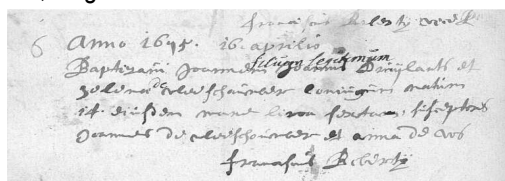 franciscus Reberty
6 Anno 1695. 16 aprilis
Baptizavi Joannem filium legitimum Joannis Druylants et
de vleeschauwer coniugum natum
14 eiusdem mane hora sexta, susceptores
Joannes de vleeschouwer et anna de vos
franciscus Reberty